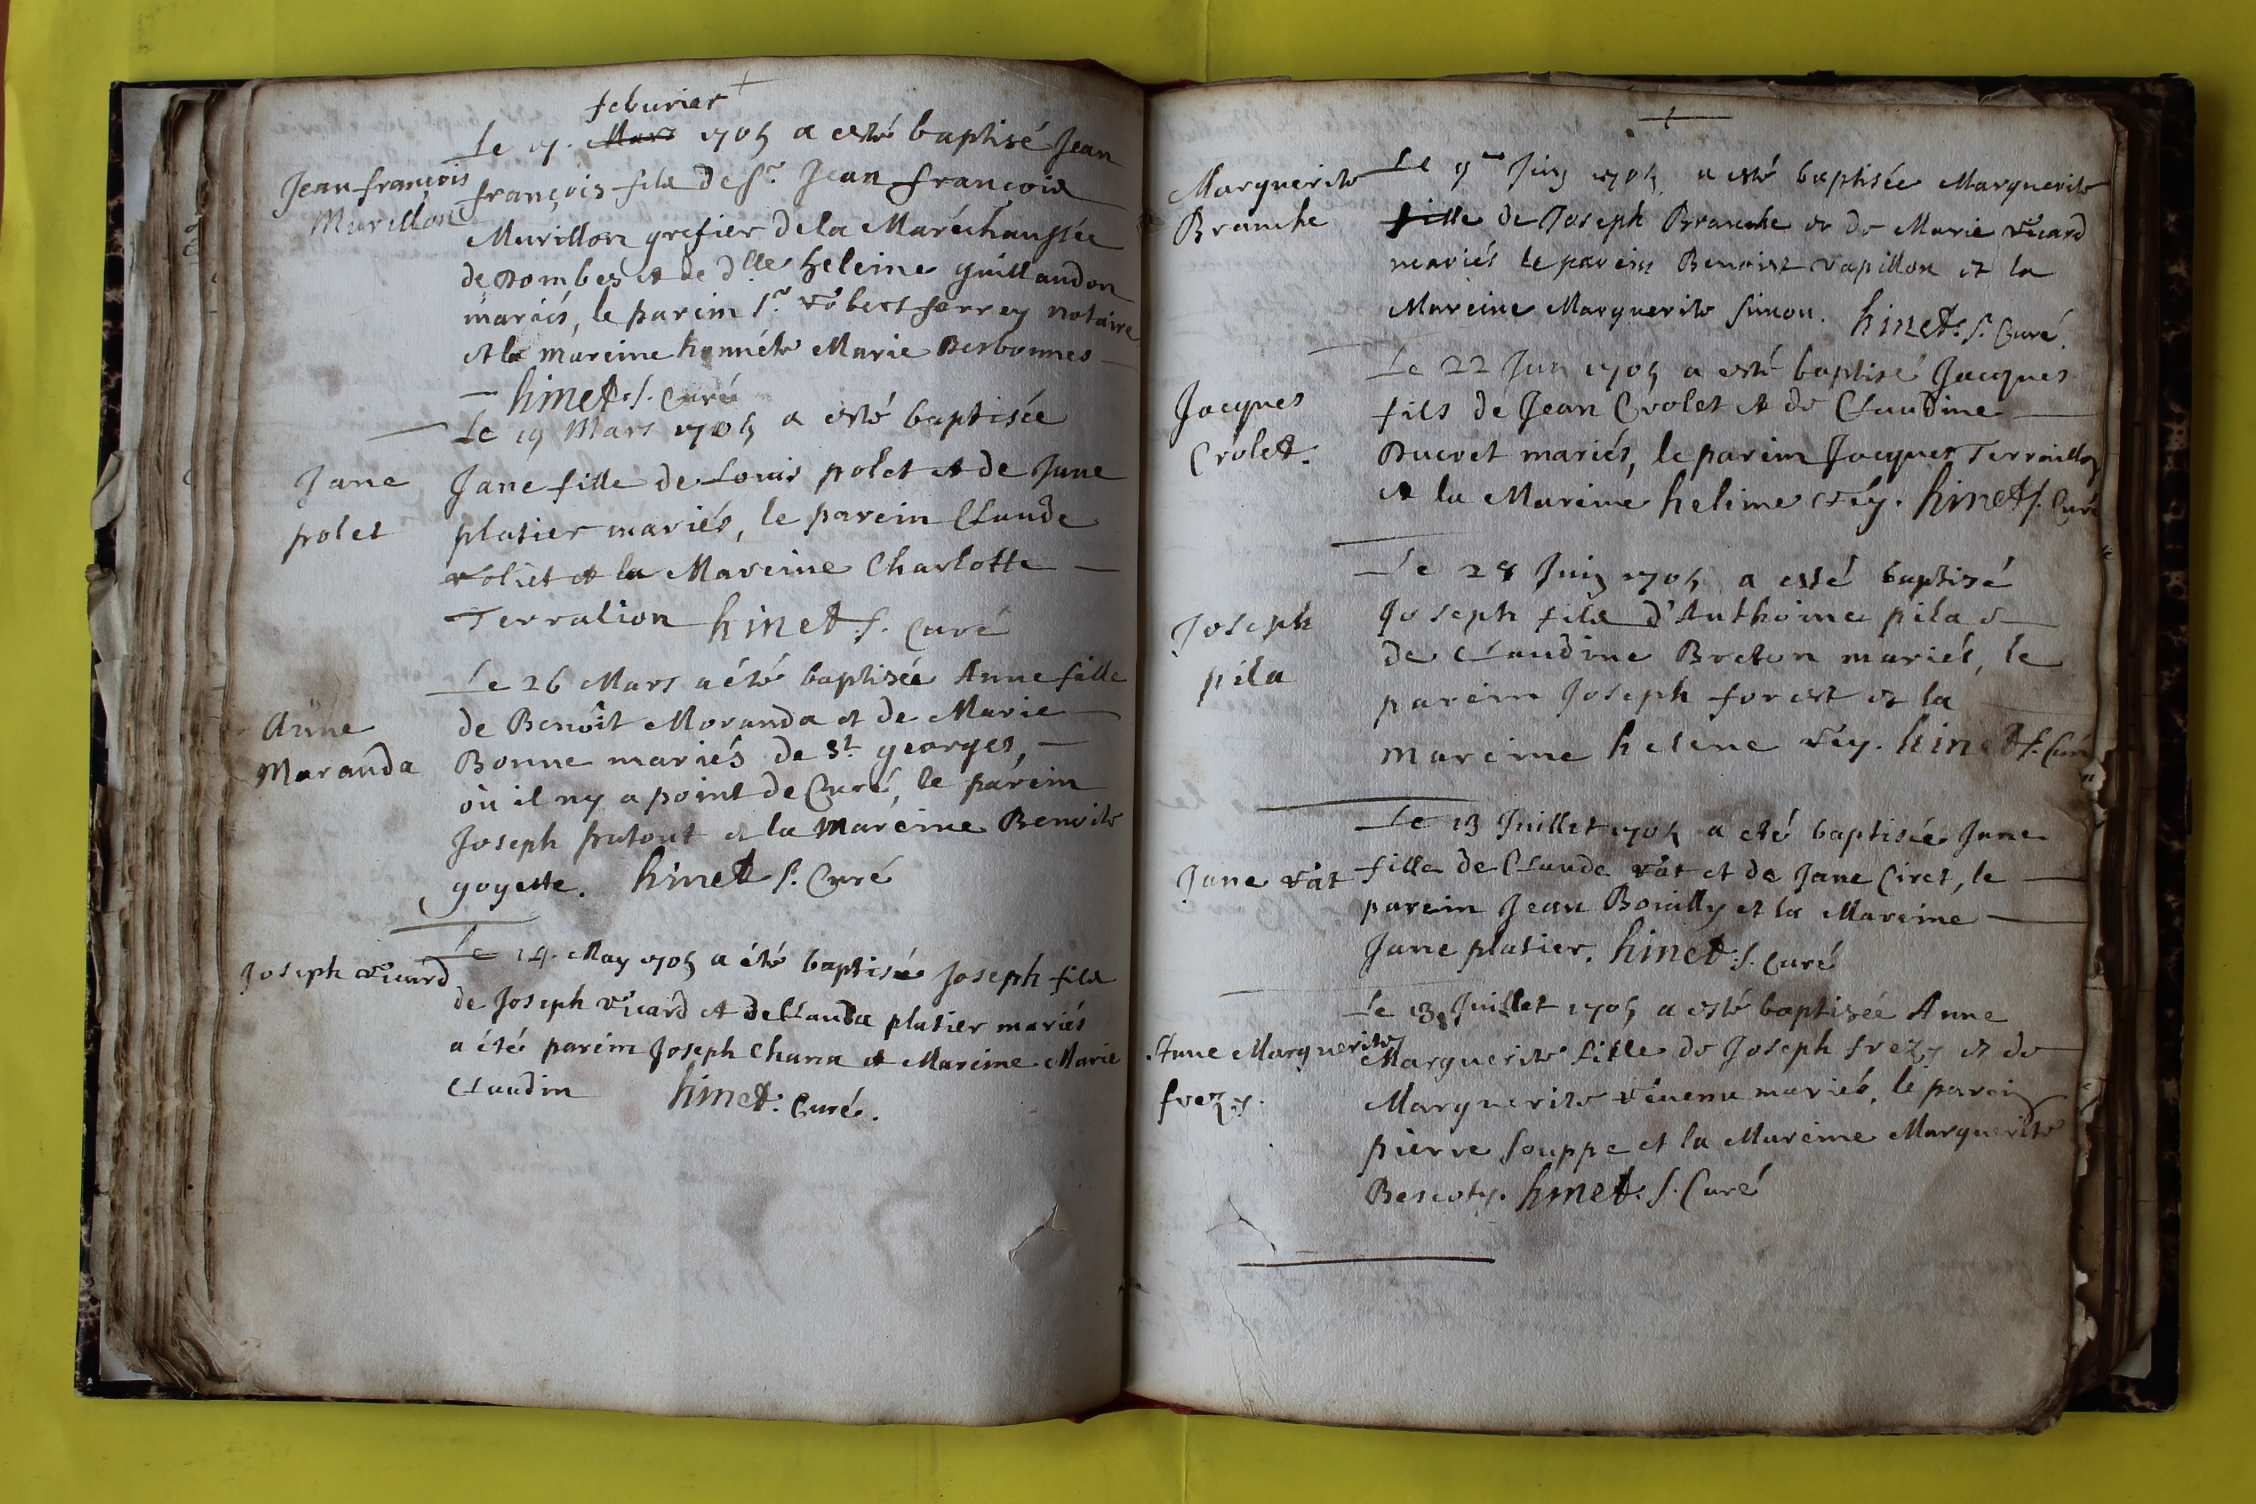 feburier
Le 17. Mars 1705 a esté baptisé Jean
Jean françois
françois fils de Sr. Jean françois
Murillon
Murillon grefier de la Maréchaussée
de Dombes et de dlle heleine Guillaudon
mariés, le parein Sr. Robert ferrey notaire
et la mareine honnéte Marie Berbonnes
hinet. S. Curé
Le 19 Mars 1705 a esté baptisée
Jane
Jane fille de Louis polet et de Jane
polet
platier mariés, le parein Claude
Voliet et la Mareine Charlotte
Terralion hinet S. Curé
Le 26 Mars a été baptisée Anne fille
Anne
de Benoît Moranda et de Marie
Maranda
Bonne mariés de St. georges,
où il ny a point de Curé, le parein
Joseph putout et la Mareine Benoite
goyette. hinet S. Curé
Le 14. May 1705 a été baptisé Joseph fils
Joseph Vicard
de Joseph Vicard et de Clauda platier mariés
a été parein Joseph Chana et Mareine Marie
Claudin hinet. Curé.
Le 9me Juin 1705 a esté baptisée Marguerite
Marguerite
Branche
fille de Joseph Branche et de Marie Vicard
mariés le parein Benoist Papillon et la
Mareine Marguerite Simon. hinet. S. Curé.
Le 22 Juin 1705 a esté baptisé Jacques
Jacques
fils de Jean Crolet et de Claudine
Crolet.
Bucret mariés, le parein Jacques Terraillon
et la Mareine heleine Rey. hinet S. Curé
Le 28 Juin 1705 a esté baptisé
Joseph
Joseph fils d'Anthoine pila &
pila
de Claudine Breton mariés, le
parein Joseph forest et la
mareine helene Rey. hinet S. Curé
Le 13 Juillet 1705 a été baptisée Jane
Jane Vât
fille de Claude Vât et de Jane Ciret, le
parein Jean Bouilly et la Mareine
Jane platier. hinet. S. Curé
Le 13 Juillet 1705 a esté baptisée Anne
Anne Marguerite
Marguerite fille de Joseph frezy et de
frezy.
Marguerite Révenu mariés, le parein
pierre Souppe et la Mareine Marguerite
Bescoty. hinet. S. Curé